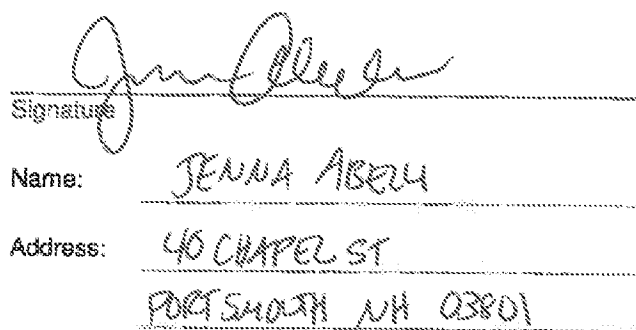 Signature
Name: JENNA
Address: 40 CHAPEL ST
PORTSMOUTH NH 03801